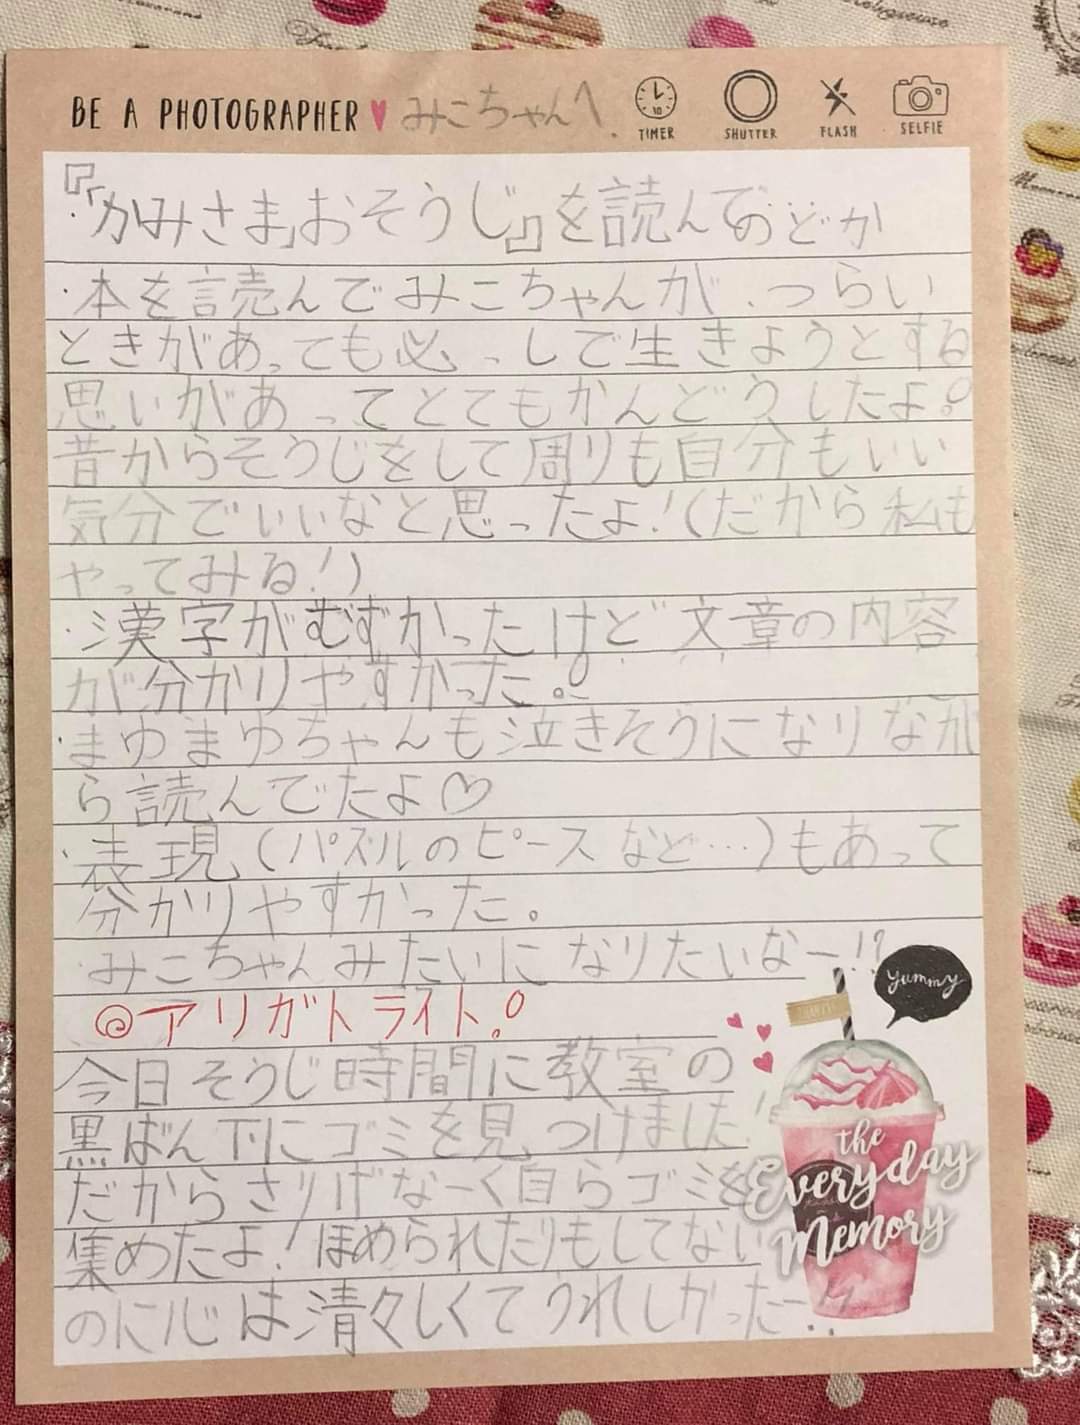 BE A PHOTOGRAPHER みこちゃんへ.
TIMER SHUTTER FLASH SELFIE
10
・『「かみさま」おそうじ』を読んで のどか
・本を読んでみこちゃんが、つらい
ときがあっても必っしで生きようとする
思いがあってとてもかんどうしたよ。
昔からそうじをして周りも自分もいい
気分でいいなと思ったよ!(だから私も
やってみる!)
・漢字がむずかったけど文章の内容
が分かりやすかった。
・まゆまゆちゃんも泣きそうになりなが
ら読んでたよ♡
・表現(パズルのピースなど…)もあって
分かりやすかった。
・みこちゃんみたいになりたいなー!?
◎アリガトライト。
今日そうじ時間に教室の
黒ばん下にゴミを見つけました!
だからさりげなーく自らゴミを
集めたよ!ほめられたりもしてない
のに心は清々しくてうれしかったー!
yummy
the
Everyday
Memory